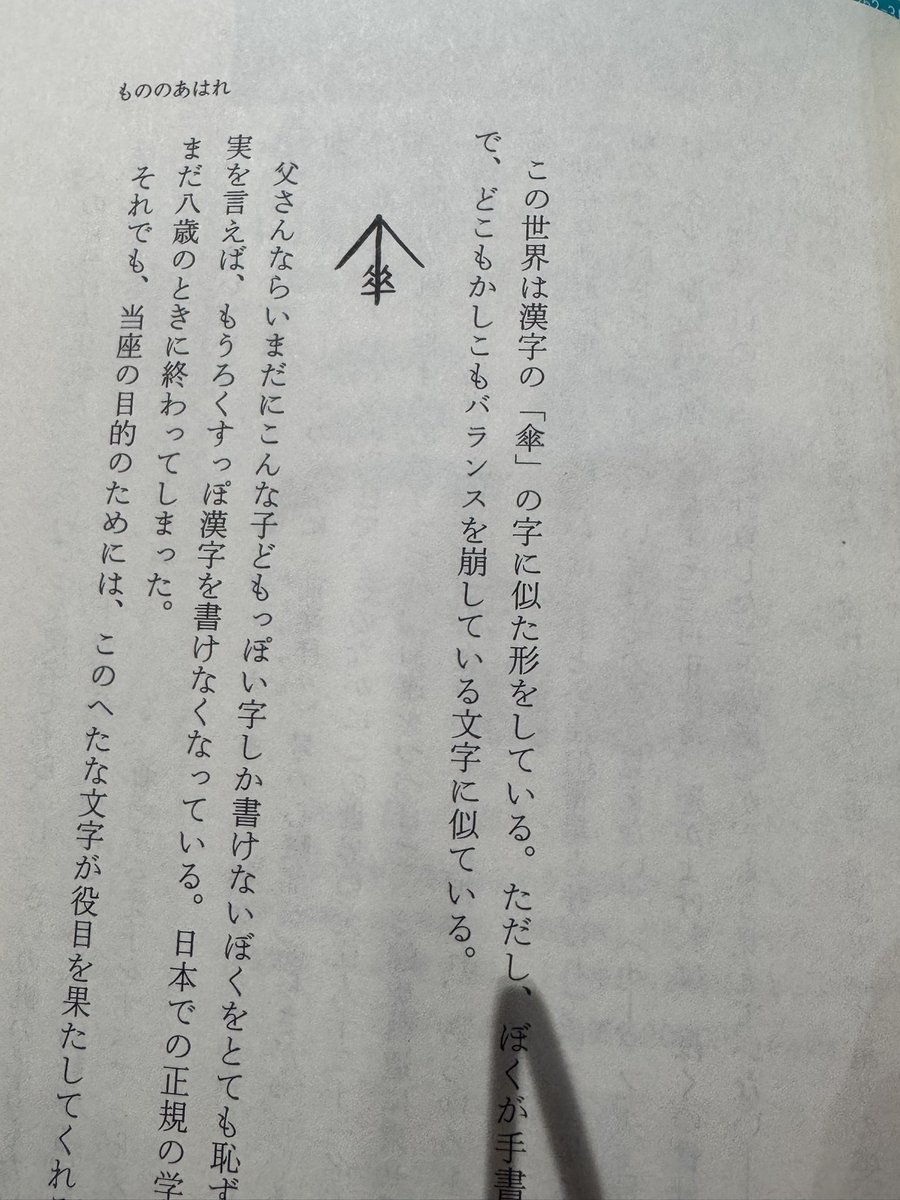 もののあはれ
この世界は漢字の「傘」の字に似た形をしている。ただし、ぼくが手書
で、どこもかしこもバランスを崩している文字に似ている。
傘
父さんならいまだにこんな子どもっぽい字しか書けないぼくをとても恥ず
実を言えば、もうろくすっぽ漢字を書けなくなっている。日本での正規の学
まだ八歳のときに終わってしまった。
それでも、当座の目的のためには、このへたな文字が役目を果たしてくれ